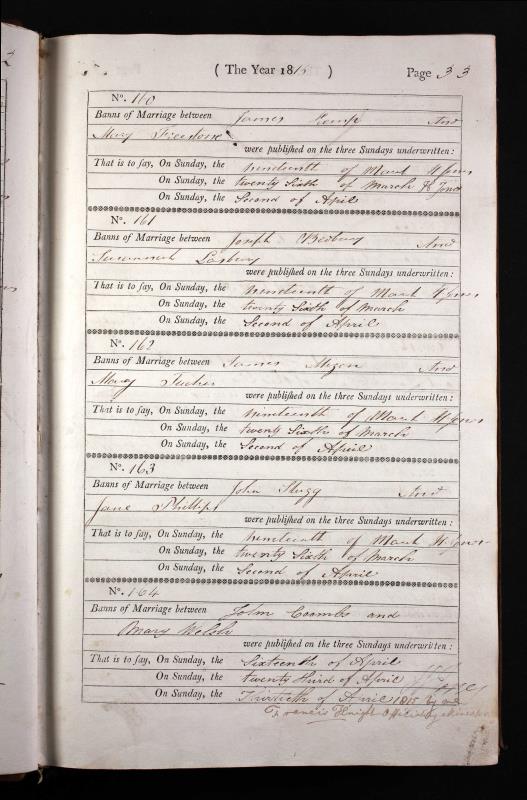 ( The Year 1815 ) Page 33
No. 160
Banns of Marriage between James Kemp And
Mary
were published on the three Sundays underwritten :
That is to say, On Sunday, the nineteenth of March W Jones
On Sunday, the twenty Sixth of March W Jones
On Sunday, the Second of April
No. 161
Banns of Marriage between Joseph And
Susannah
were published on the three Sundays underwritten :
That is to say, On Sunday, the nineteenth of March W Jones
On Sunday, the twenty Sixth of March
On Sunday, the Second of April
No. 162
Banns of Marriage between James And
Mary Tucker
were published on the three Sundays underwritten :
That is to say, On Sunday, the nineteenth of March W Jones
On Sunday, the twenty Sixth of March
On Sunday, the Second of April
No. 163
Banns of Marriage between John And
Jane Phillips
were published on the three Sundays underwritten :
That is to say, On Sunday, the nineteenth of March W Jones
On Sunday, the twenty Sixth of March
On Sunday, the Second of April
No. 164
Banns of Marriage between John Coombs and
Mary Welsh
were published on the three Sundays underwritten :
That is to say, On Sunday, the Sixteenth of April
On Sunday, the twenty third of April
On Sunday, the Thirtieth of April 1815
Francis